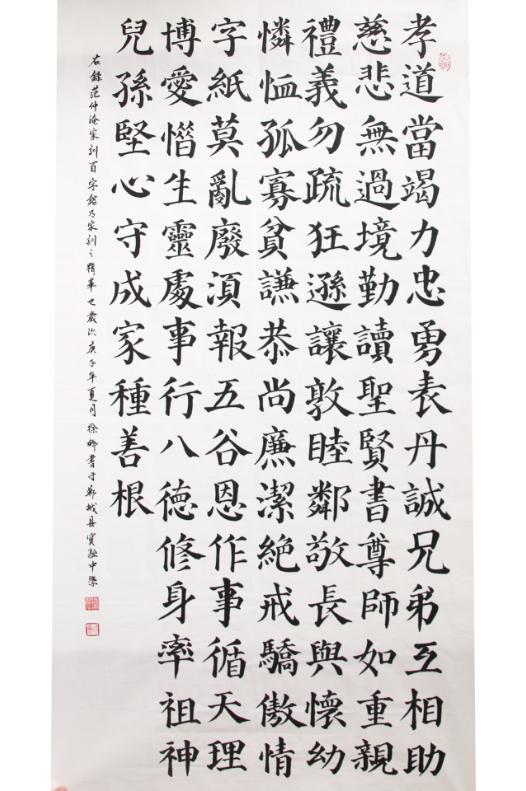 孝道當竭力忠勇表丹誠兄弟互相助
慈悲無過境勤讀聖賢書尊師如重親
禮義勿疏狂遜讓敦睦鄰敬長與懷幼
憐恤孤寡貧謙恭尚廉潔絕戒驕傲情
字紙莫亂廢須報五谷恩作事循天理
博愛惜生靈處事行八德修身率祖神
兒孫堅心守成家種善根
右錄范仲淹家訓百字銘乃家訓之精華也歲次庚子年夏月徐書于城县實驗中學